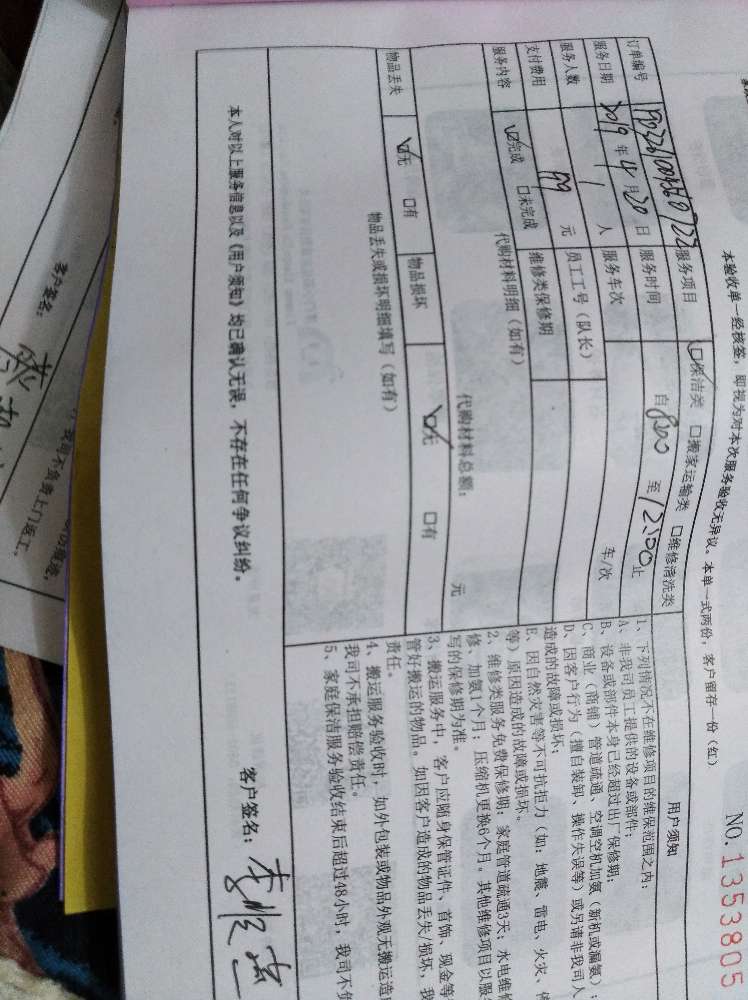 NO.1353805
本验收单一经核签，即视为对本次服务验收无异议。本单一式两份，客户留存一份（红）
订单编号 服务项目 保洁类 搬家运输类 维修清洗类 用户须知
服务日期 2019 年 4 月 20 日 服务时间 自 8:00 至 12:00 止
服务人数 1 人 服务车次 车/次
支付费用 元 员工工号（队长）
服务内容 完成 未完成 维修类保修期
代购材料明细（如有）
代购材料总额： 元
物品丢失 无 有 物品损坏 无 有
物品丢失或损坏明细填写（如有）
本人对以上服务信息以及《用户须知》均已确认无误，不存在任何争议纠纷。
1、下列情况不在维修项目的维保范围之内：
A、非我司员工提供的设备或部件；
B、设备或部件本身已经超过出厂保修期；
C、商业（商铺）管道疏通、空调空机加氨（新机或漏氨）；
D、因客户行为（擅自装卸、操作失误等）或另请非我司人
造成的故障或损坏；
E、因自然灾害等不可抗拒力（如：地震、雷电、火灾、
等）原因造成的故障或损坏。
2、维修类服务免费保修期：家庭管道疏通3天；水电维
修、加氨1个月；压缩机更换6个月。其他维修项目以服
写的保修期为准。
3、搬运服务中，客户应随身保管证件、首饰、现金等
管好搬运的物品。如因客户造成的物品丢失/损坏，我
责任。
4、搬运服务验收时，如外包装或物品外观无搬运造
我司不承担赔偿责任。
5、家庭保洁服务验收结束后超过48小时，我司不
客户签名：
客户签名：
我司不负责上门返工。